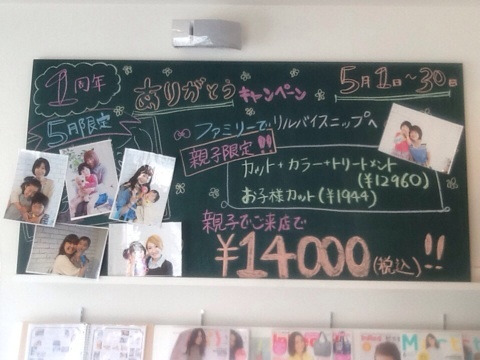 1周年
ありがとう キャンペーン
5月1日〜30日
5月限定
ファミリーで!! リルバイスニップへ
親子限定!!
カット+カラー+トリートメント
(¥12960)
お子様カット(¥1944)
親子でご来店で
¥14000(税込)!!